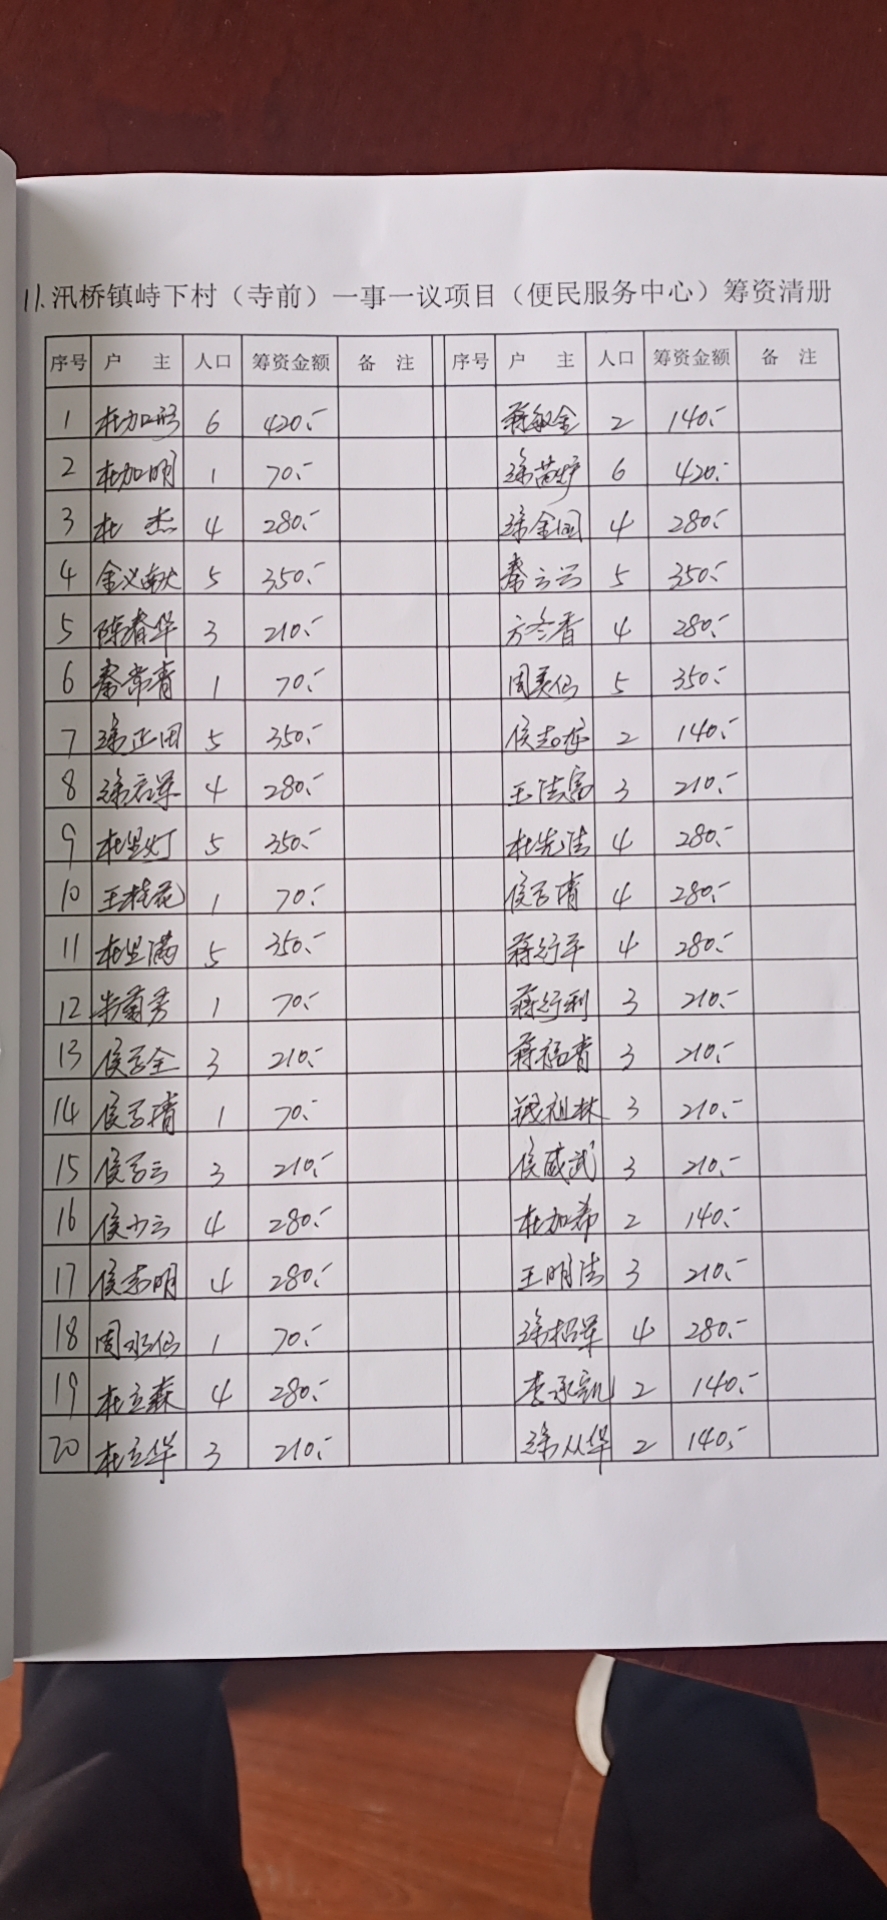 11.汛桥镇峙下村（寺前）一事一议项目（便民服务中心）筹资清册
序号 户 主 人口 筹资金额 备 注 序号 户 主 人口 筹资金额 备 注
1 杜加形 6 420.- 蒋敏金 2 140.-
2 杜加明 1 70.- 6 420.-
3 杜 杰 4 280.- 涂金国 4 280.-
4 金义 5 350.- 秦云兰 5 350.-
5 陈春华 3 210.- 方冬香 4 280.-
6 秦常青 1 70.- 周美仙 5 350.-
7 涂正田 5 350.- 2 140.-
8 涂云军 4 280.- 3 210.-
9 杜里灯 5 350.- 杜先法 4 280.-
10 王桂花 1 70.- 4 280.-
11 杜里满 5 350.- 蒋行平 4 280.-
12 牛菊秀 1 70.- 蒋行利 3 210.-
13 侯言全 3 210.- 蒋福青 3 210.-
14 1 70.- 钱祖林 3 210.-
15 侯言云 3 210.- 侯威武 3 210.-
16 侯小云 4 280.- 杜加希 2 140.-
17 侯志明 4 280.- 王明法 3 210.-
18 周水仙 1 70.- 涂招军 4 280.-
19 杜立森 4 280.- 李承凯 2 140.-
20 杜立华 3 210.- 涂从华 2 140.-